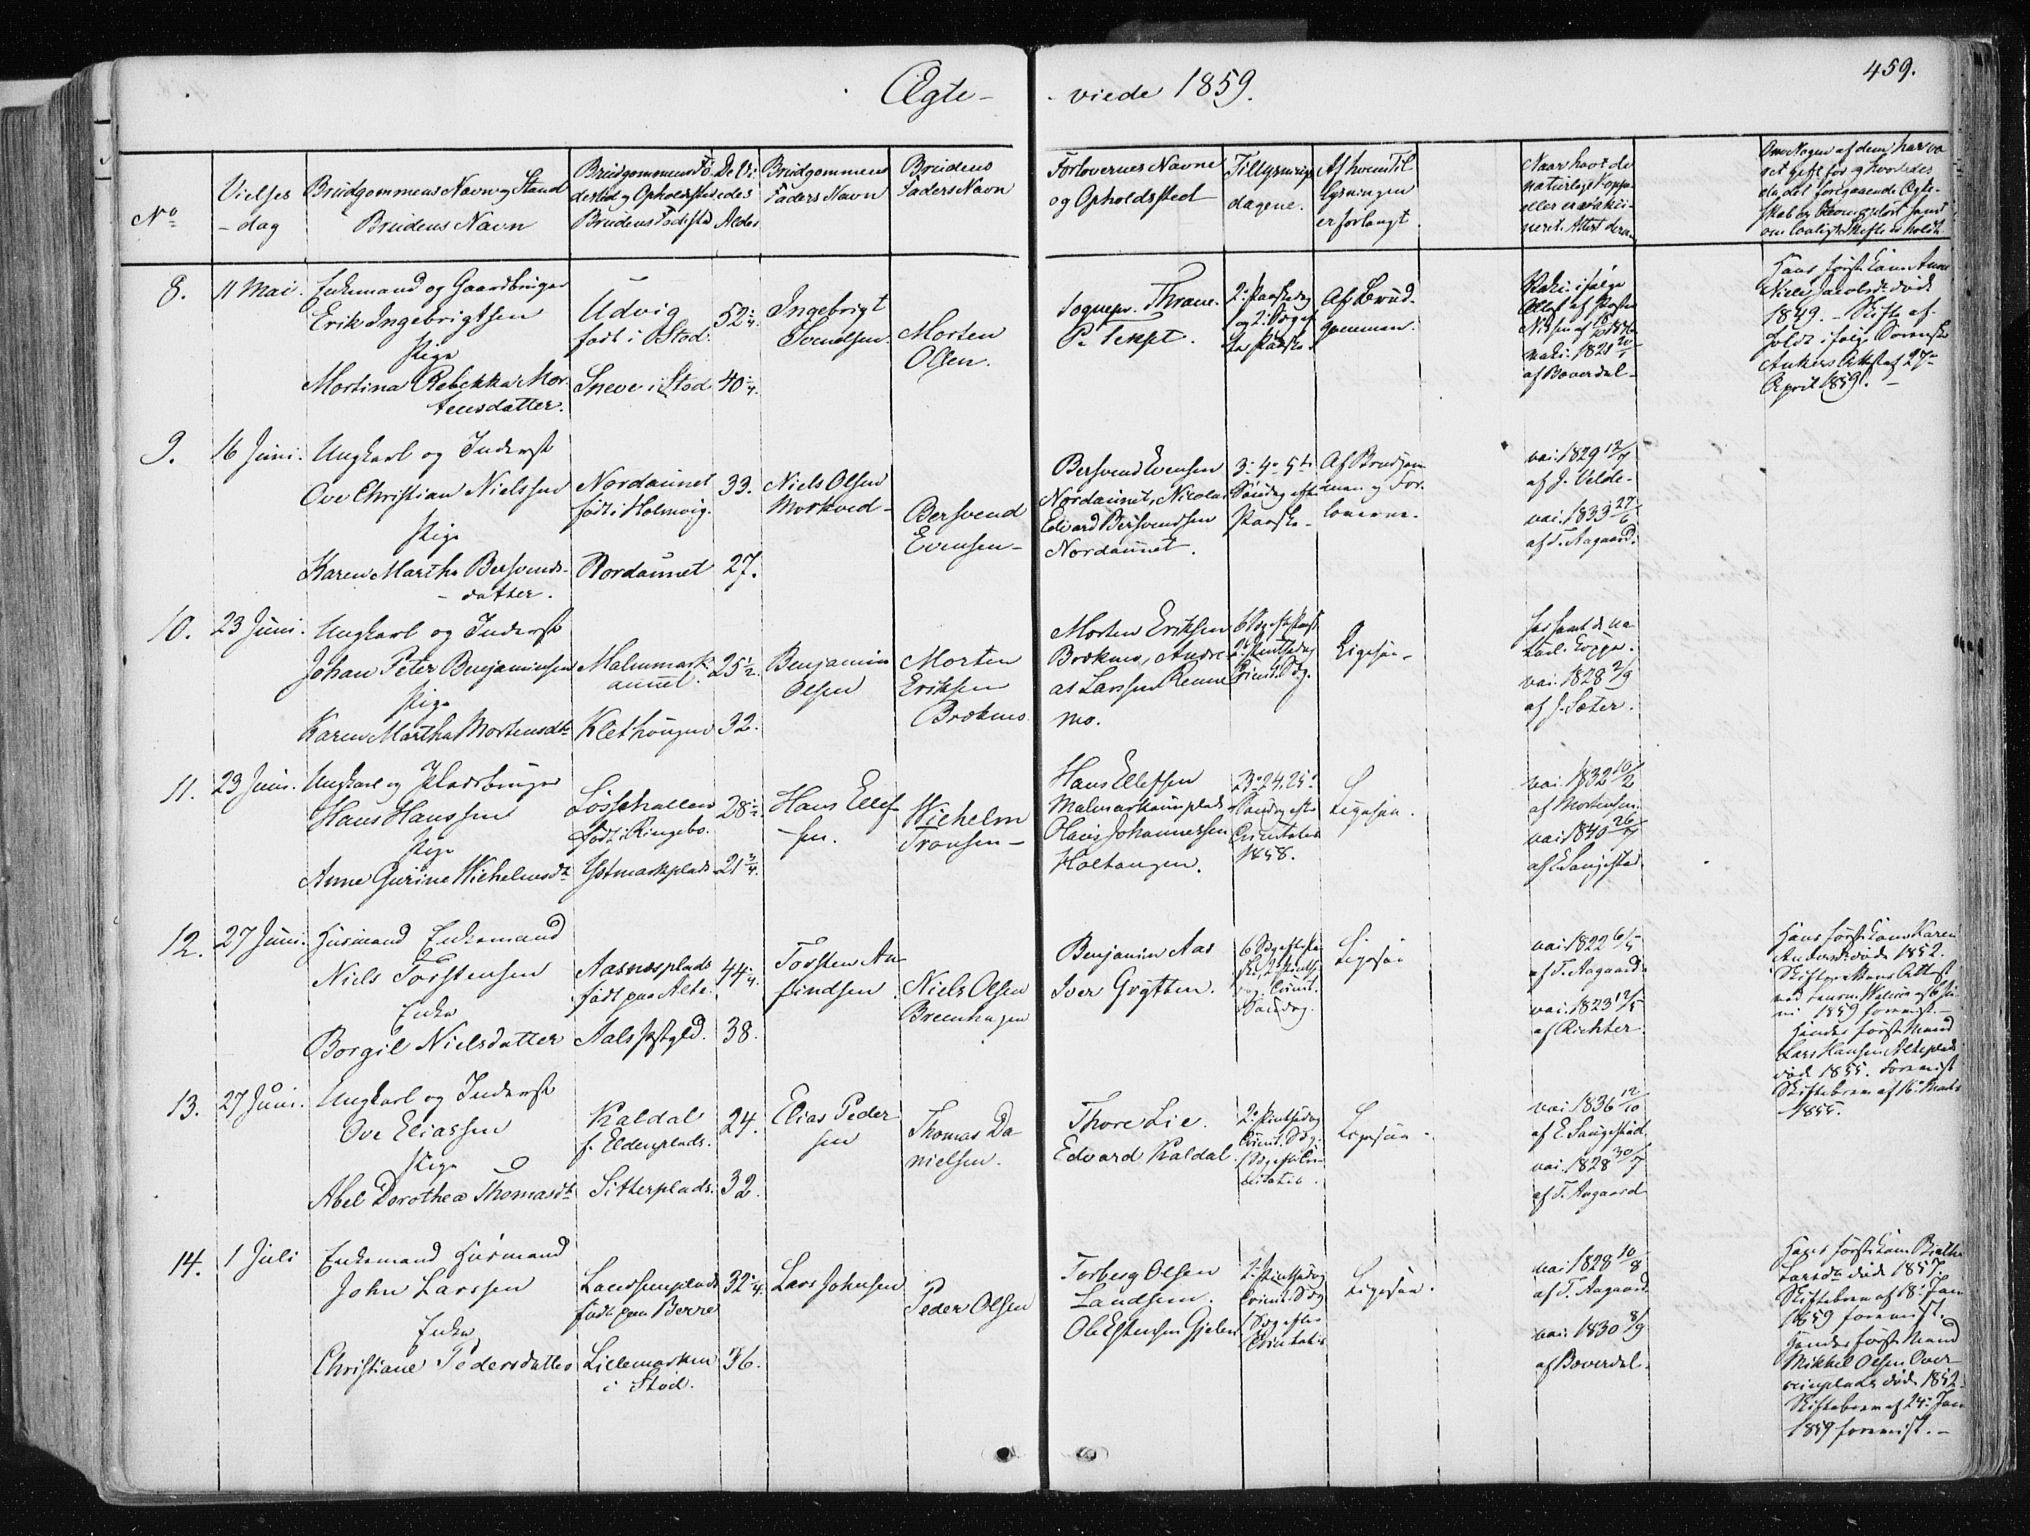 Ægte- - viede 1859.
459.
No
Vielses
- dag
Brudgommens Navn og Stand
Brudens Navn
Brudgommens Fö-
destad og Opholdsted
Brudens Fodested
De Vi-
edes
Alder
Brudgommens
Faders Navn
Brudens
Faders Navn
Forlovernes Navne
og Opholdssted
Tillysnings
dagene.
Af hvem Til
lysningen
er forlangt
Naar havt de
naturlige Kopper
eller er vakci-
neret. Attest derom
Om Nogen af dem har væ
ret gift før og hvorledes
8. 11 Mai.
Enkemand og Gaardbruger
Erik Ingebrigtsen
Pige
Martina Rebekka Mor-
tensdatter.
Udvig
født i Stod.
Sneve i Stod
52 1/4.
40 1/4.
Ingebrigt
Svendsen.
Morten
Olsen.
Sognepr. Thrane.
P. Teppt.
2. Paaskedag
og 2. Søge
Af Brud-
gommen.
af Boverdal-
Hans første Kone Anne
Niels Jacobsdt. døde
1849. - Skifte af-
holdt i følge Sorenskr
Ankers Attest af 27de
April 1859. -
9. 16 Juni.
Ungkarl og Inderst
Ove Christian Nielssen
Pige
Karen Martha Bersvends-
- datter.
Nordaunet
født i Holmvig.
Nordaunet
33.
27.
Niels Olsen
Morkved-
Bersvend
Evensen-
Bersvend Evensen
Nordaunet, Nicolai
Edvard Bersvendsen
Nordaunet.
3. 4. 5te
Søndag efter
Paaske-
Af Brudgom
men og For-
loverne.
vai. 1829 12/7
af J. Velde-
vai. 1833 27/6
af T. Aagaard.
10. 23 Juni.
Ungkarl og Inderst
Johan Peter Benjaminsen
Pige
Karen Martha Mortensdt.
Malmmark-
aunet.
Klethaugen
25 1/2.
32.
Benjamin
Olsen
Morten
Eriksen
Brøkmo.
Morten Eriksen
Brøkmo, Andre-
as Larssen Renne
mo.
2. Pintsedag
Ligesaa-
har havt de na-
turl. Kopper.
vai. 1828 2/9
af J. Sæter.
11. 23 Juni.
Ungkarl og Pladsbruger
Hans Hanssen
Pige
Anne Gurine Wichelmsdt.
født i Ringebo.
Ystmarkplads
28 1/2
21 3/4.
Hans Ellef-
sen.
Wichelm
Tronsen-
Hans Ellefsen
Malmarkaunplads
Hans Johannessen
Holtangen.
23. 24. 25.
Søndag efter
Trinitatis
1858.
Ligesaa.
vai. 1832 10/2
af Mortensen.
vai. 1840 26/7
af E. Langestad.
12. 27 Juni.
Husmand Enkemand
Niels Torstensen
Enke
Borgil Nielsdatter
Aasnesplads
født paa Alte.
Aals Pstgld.
44 1/4.
38.
Torsten Au-
stindsen.
Niels Olsen
Breenhagen
Benjamin Aas
Iver Grytten.
Ligesaa
vai. 1822 6/5
af T. Aagaard.
vai. 1823 12/5
af Richter.
Hans første Kone Karen
Andersdt døde 1852.
ni 1859 forevist. -
Hendes første Mand
Lars Hansen Alteplads
død 1855. Forevist
Skiftebrev af 16. Marts
1855.
13. 27 Juni.
Ungkarl og Inderst
Ove Eliassen
Pige
Abel Dorothea Thomasdt.
Kaldal
f. Eldenplads.
Sitterplads.
24.
32.
Elias Peder
sen
Thomas Da-
nielsen.
Thore Lie.
Edvard Kaldal.
2. Pintsedag
Trinit. Søg.
Ligesaa-
vai. 1836 12/10
af E. Langestad.
vai. 1828 30/7
af T. Aagaard
14. 1 Juli
Enkemand Husmand
John Larssen
Enke
Christiane Pedersdatter
Landsemplads
født paa Berre
Lillemarken
i Stod.
32 1/4.
36.
Lars Johnsen
Peder Olsen
Torberg Olsen
Landsem.
Ole Estensen Gjelen
2. Pintsedag
Trinit. Søg
1 Søg efter
Trinitatis
Ligesaa.
vai. 1828 10/8
af T. Aagaard
vai. 1830 8/9
af Boverdal.
Hans første Kone Birthe
Larsdt. døde 1857.
Skiftebrev af 18. Jan
1859 forevist.
Hendes første Mand
Mikkel Olsen Over-
veiplads døde 1852.
Skiftebrev af 24. Jan
1859 forevist. -